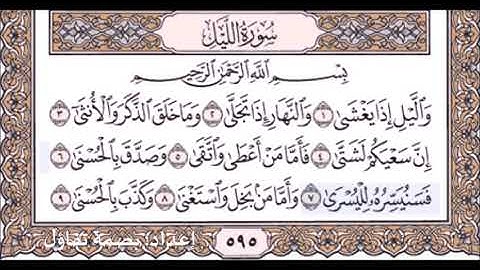 سُورَةُ اللَّيْلِ
بِسْمِ اللَّهِ الرَّحْمَٰنِ الرَّحِيمِ
وَاللَّيْلِ إِذَا يَغْشَىٰ ١ وَالنَّهَارِ إِذَا تَجَلَّىٰ ٢ وَمَا خَلَقَ الذَّكَرَ وَالْأُنثَىٰ ٣
إِنَّ سَعْيَكُمْ لَشَتَّىٰ ٤ فَأَمَّا مَنْ أَعْطَىٰ وَاتَّقَىٰ ٥ وَصَدَّقَ بِالْحُسْنَىٰ ٦
فَسَنُيَسِّرُهُ لِلْيُسْرَىٰ ٧ وَأَمَّا مَن بَخِلَ وَاسْتَغْنَىٰ ٨ وَكَذَّبَ بِالْحُسْنَىٰ ٩
٥٩٥
اعداد: بصمة تفاؤل